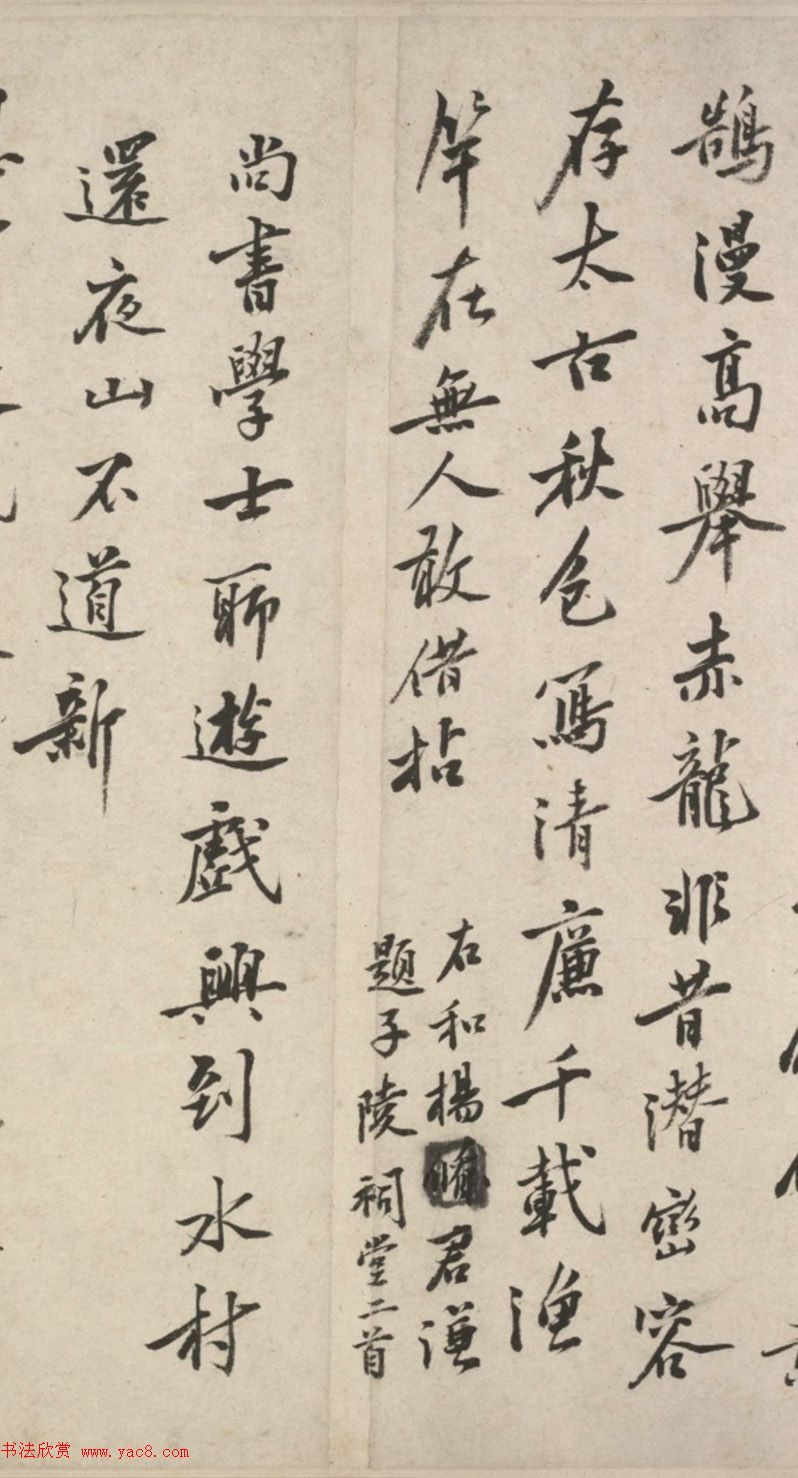 鵠漫高舉赤龍非昔潛巒容
存太古秋色寫清廉千載漁
竿在無人敢借拈
右和楊君谦
題子陵祠堂二首
尚書學士聊遊戲興到水村
還夜山不道新
书法欣赏 www.yac8.com